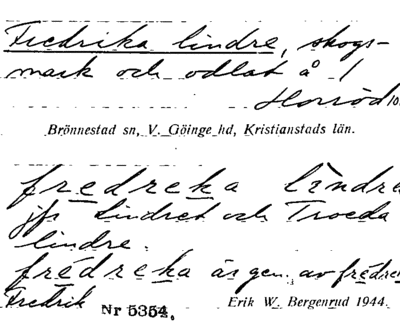 Fredrika lindre, skogs-
mark och odlat å 1
Horröd 10
Brönnestad sn, V. Göinge hd, Kristianstads län.
fredreka lindre
jfs Lindret och Troeda
lindre.
fredreka är gen. av fredrek
Fredrik Nr 5354. Erik W. Bergenrud 1944.